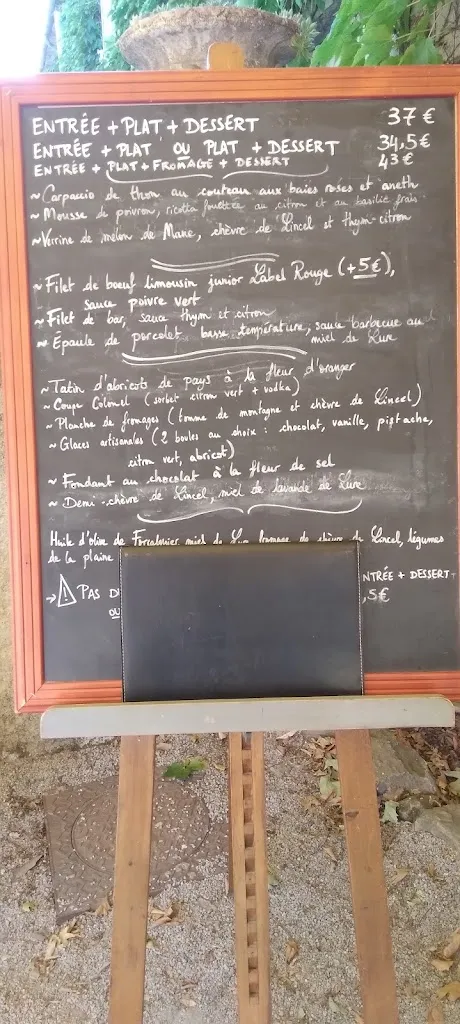 ENTRÉE + PLAT + DESSERT 37 €
ENTRÉE + PLAT OU PLAT + DESSERT 34,5 €
ENTRÉE + PLAT + FROMAGE + DESSERT 43 €
~ Carpaccio de thon au couteau aux baies roses et aneth
~ Mousse de poivron, ricotta fouettée au citron et au basilic frais
~ Verrine de melon de Mane, chèvre de Lincel et thym-citron
~ Filet de bœuf limousin junior Label Rouge (+5€),
sauce poivre vert
~ Filet de bar, sauce thym et citron
~ Epaule de porcelet basse température, sauce barbecue au
miel de Lure
~ Tatin d'abricots de pays à la fleur d'oranger
~ Coupe Colonel (sorbet citron vert + vodka)
~ Planche de fromages (tomme de montagne et chèvre de Lincel)
~ Glaces artisanales (2 boules au choix : chocolat, vanille, pistache,
citron vert, abricot)
~ Fondant au chocolat à la fleur de sel
~ Demi-chèvre de Lincel, miel de lavande de Lure
Huile d'olive de Forcalquier, miel de Lure, fromage de chèvre de Lincel, légumes
de la plaine
→ ⚠ PAS D NTRÉE + DESSERT
OU ,5€